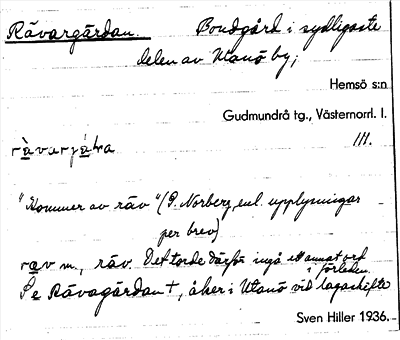 Rävargärdan. Bondgård i sydligaste
delen av Utanö by;
Hemsö s:n
Gudmundrå tg., Västernorrl. l.
III.
"Kommer av räv" (P. Norberg, enl. upplysningar
per brev)
m., räv. Det torde därför ingå ett annat ord
i förleden.
Se Rävagärdan +, åker i Utanö vid lagaskifte
Sven Hiller 1936.